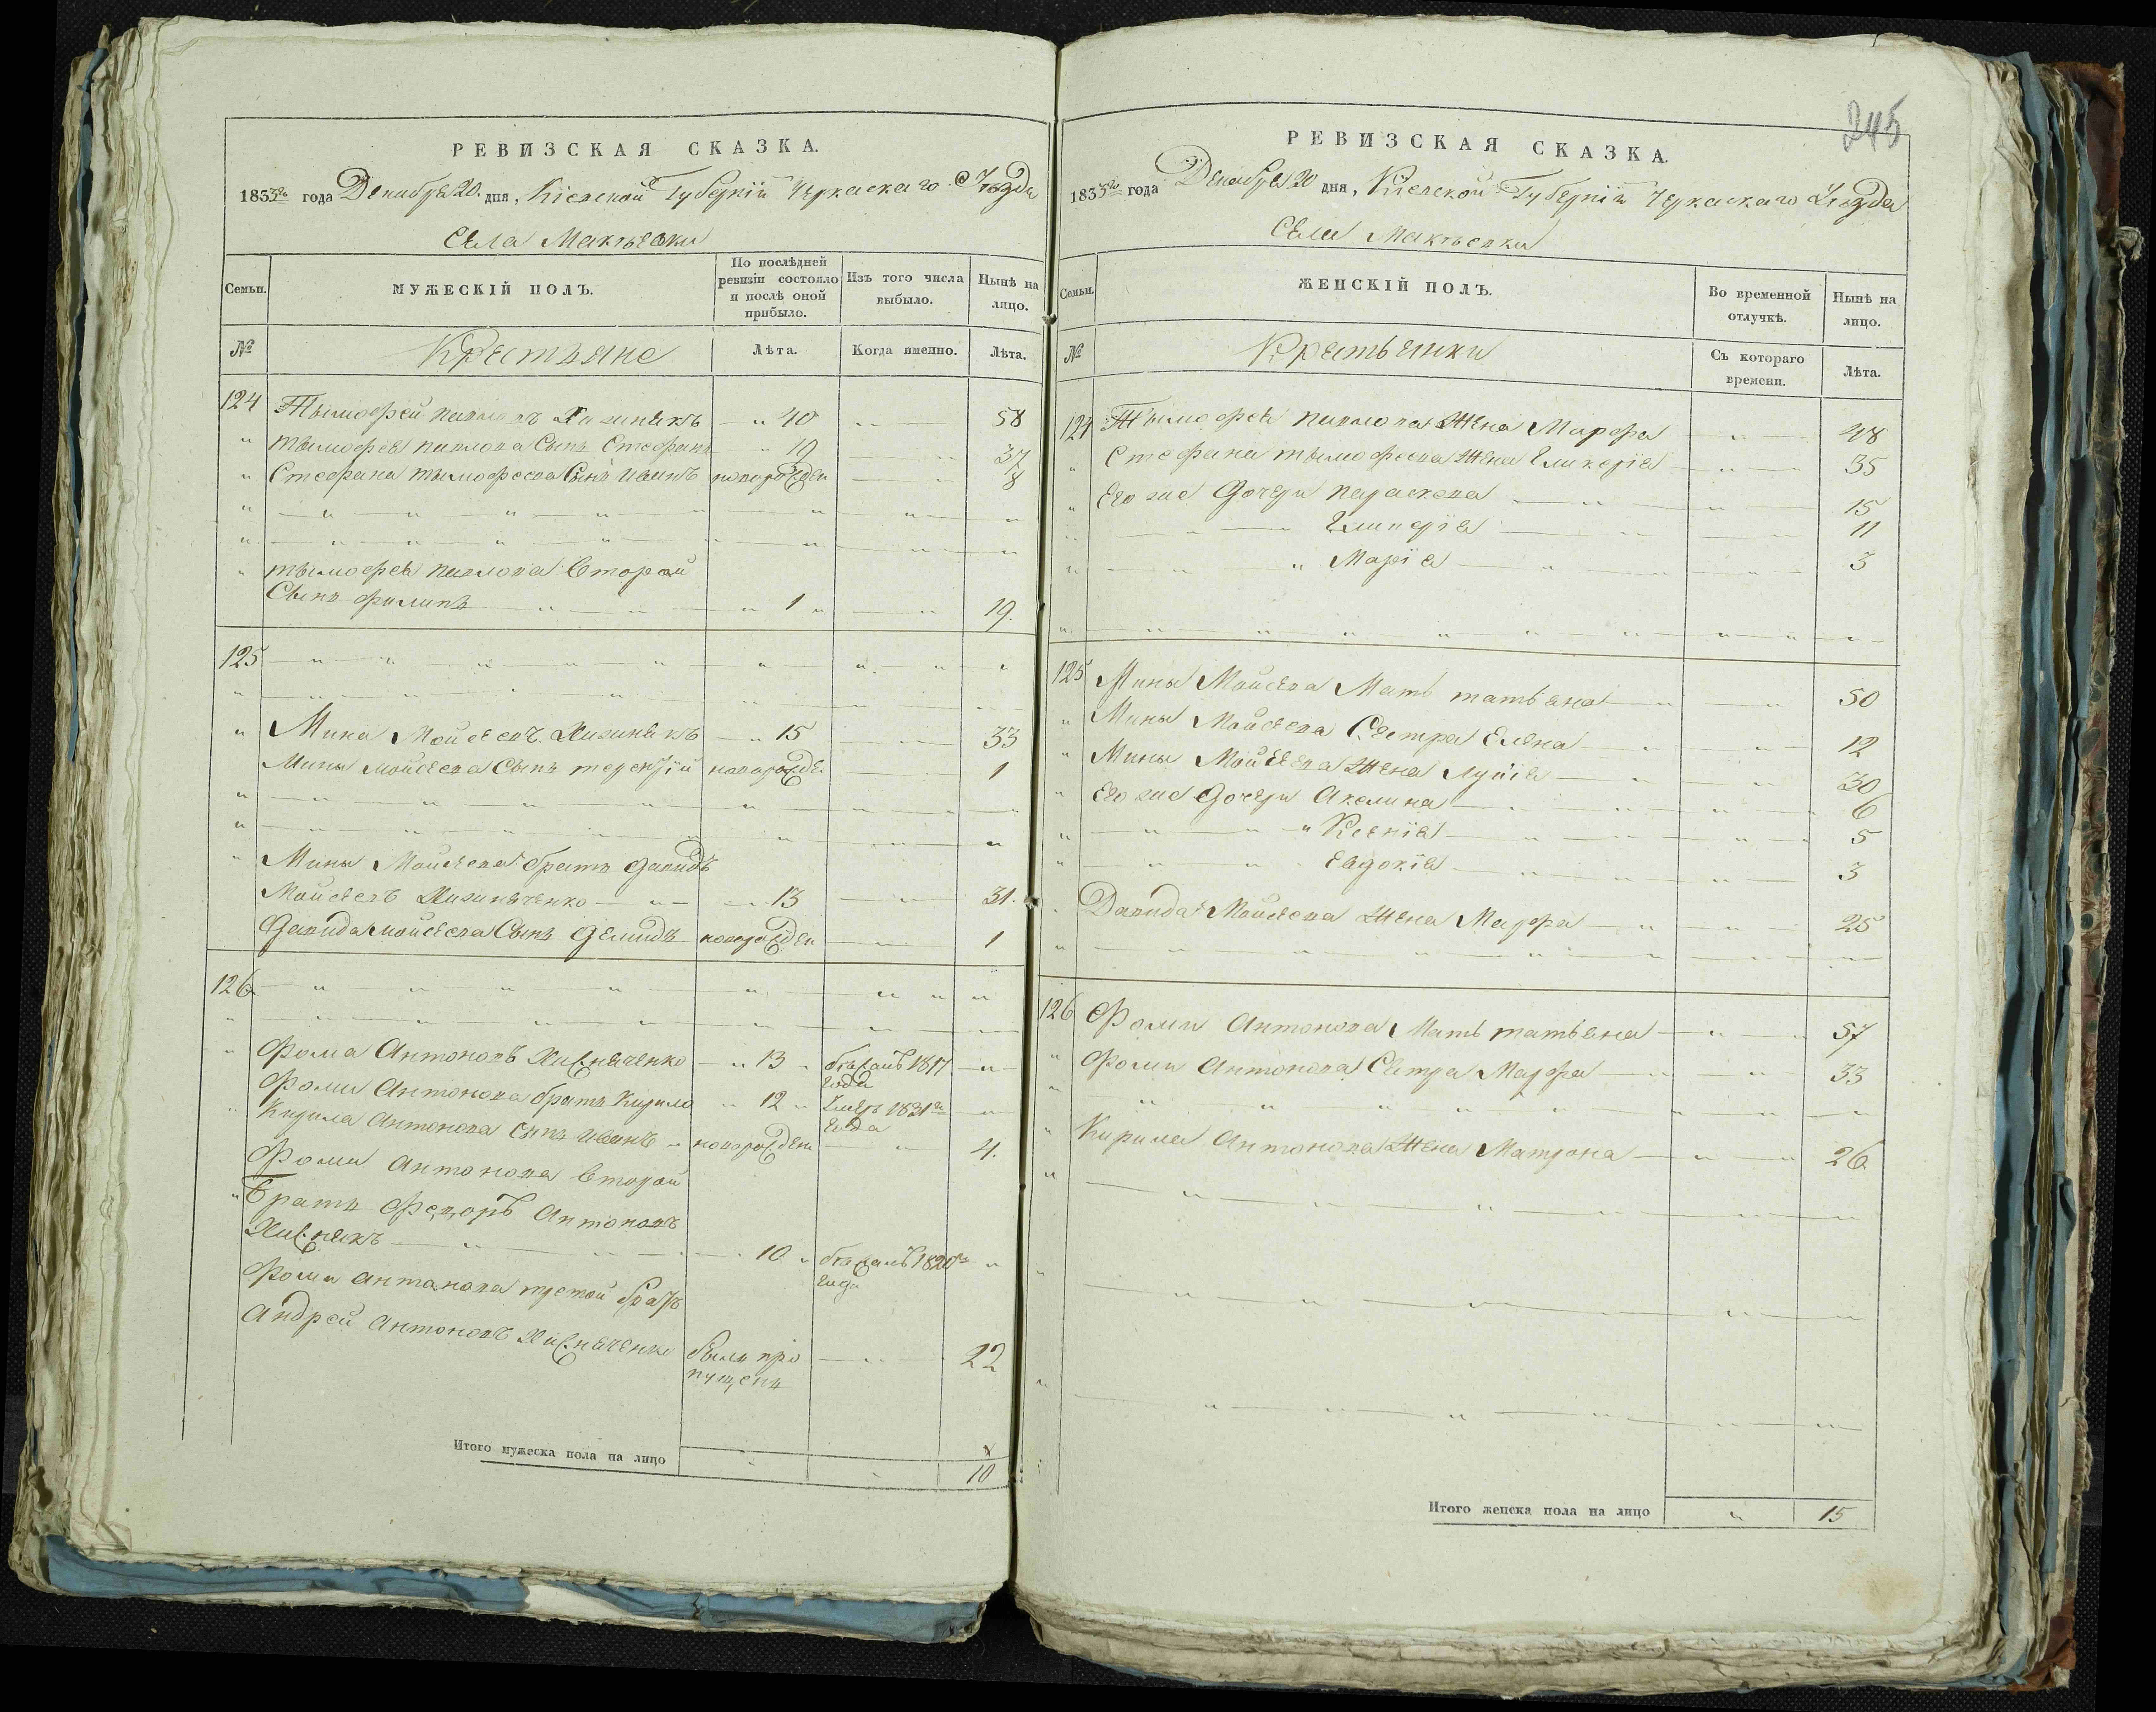 РЕВИЗСКАЯ СКАЗКА.
1835го года Декабря 20. дня, Кіевской Губерніи Черкаскаго Уѣзда
Села Макѣевки
Семьи.
МУЖЕСКІЙ ПОЛЪ.
По послѣдней ревизіи состояло и послѣ оной прибыло.
Изъ того числа выбыло.
Нынѣ на лицо.
№
Крестьяне
Лѣта.
Когда именно.
Лѣта.
124 Тымофей Павловъ Хижнякъ „ 40 „ 58
„ Тымофея Павлова Сынъ Стефанъ „ 19 „ 37
„ Стефана Тымофеева Сынъ Иванъ новорожден „ 8
„ Тымофея Павлова Второй
Сынъ Филипъ „ 1 „ 19.
125
„ Мина Мойсеевъ Хижнякъ „ 15 33
Мины Мойсеева Сынъ Терентій новорожде. 1
„ Мины Мойсеева братъ Давидъ
Мойсеевъ Хижняченко „ 13 31.
Давида Мойсеева Сынъ Демидъ новорожден 1
126
„ Фома Антоновъ Хижняченко „ 13 „ бежалъ 1817 года
Фомы Антонова братъ Кирило „ 12 „ Умеръ 1831го года
„ Кирила Антонова Сынъ Иванъ „ новорожден „ 4.
Фомы Антонова Второй
„ братъ Федоръ Антоновъ
Хижнякъ 10 „ бежалъ 1820го года
Фомы Антонова третой братъ
Андрей Антоновъ Хижняченко былъ пропущенъ 22
Итого мужеска пола на лицо „ „ 10
245
РЕВИЗСКАЯ СКАЗКА.
1835го года Декабря 20 дня, Кіевской Губерніи Черкаскаго Уѣзда
Села Макѣевки
Семьи.
ЖЕНСКІЙ ПОЛЪ.
Во временной отлучкѣ.
Нынѣ на лицо.
№
Крестьянки
Съ котораго времени.
Лѣта.
124 Тымофея Павлова Жена Марфа „ 48
„ Стефана Тымофеева Жена Гликерія „ 35
„ Его же дочери Параскева „ 15
„ Гликерія 11
„ Марія „ 3
125 Мины Мойсеева Мать Татьяна „ 50
„ Мины Мойсеева Сестра Елена „ 12
„ Мины Мойсеева Жена 30
„ Его же дочери Акелина „ 6
„ Ксенія „ 5
„ Евдокія „ 3
Давида Мойсеева Жена Марфа „ 25
126 Фомы Антонова Мать Татьяна „ 57
„ Фомы Антонова Сестра Марфа „ 33
„ Кирила Антонова Жена Матрона „ 26
Итого женска пола на лицо „ 15